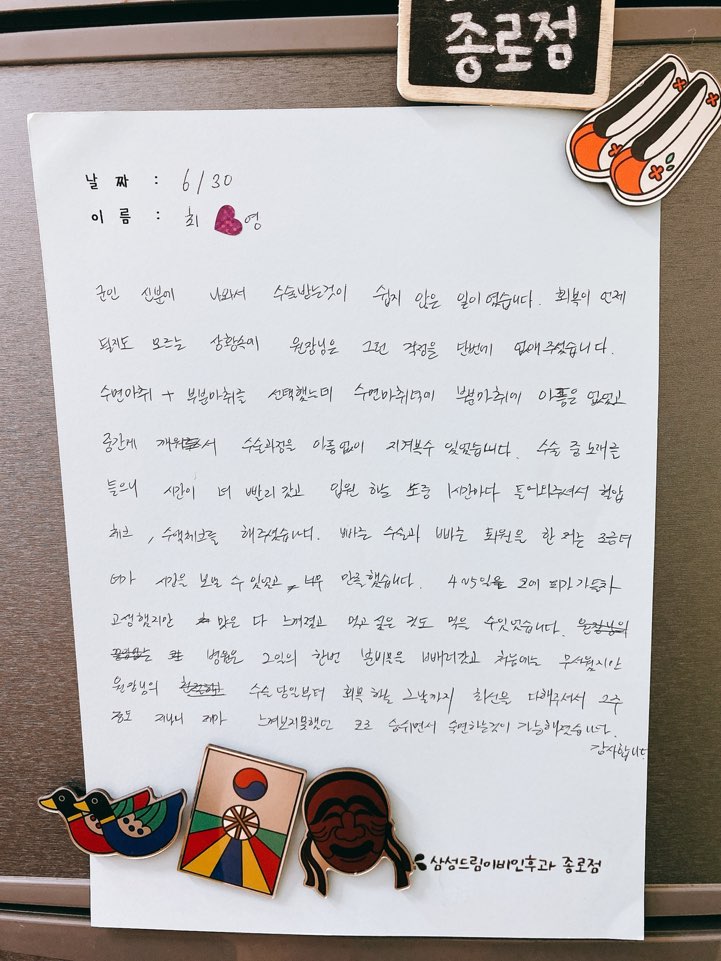 종로점
날 짜 : 6/30
이 름 : 최 영
군인 신분에 나와서 수술받는것이 쉽지 않은 일이였습니다. 회복이 언제
될지도 모르는 상황속에 원장님은 그런 걱정을 단번에 없애주셨습니다.
수면마취 + 부분마취를 선택했는데 수면마취덕에 부분마취에 아픔은 없었고
중간에 깨워주셔서 수술과정을 아픔없이 지켜볼수 있었습니다. 수술 중 노래를
들으니 시간이 더 빨리 갔고 입원 하는 도중 1시간마다 들어와주셔서 혈압
체크, 수액체크를 해주셨습니다. 빠른 수술과 빠른 회원을 한 저는 조금더
내가 시간을 보낼 수 있었고 너무 만족했습니다. 4~5일을 코에 피가 가득차
고생했지만 맛은 다 느껴졌고 먹고 싶은 것도 먹을 수있었습니다.
병원은 2일의 한번 불비못을 빼러갔고 처음에는 무서웠지만
원장님의 수술당일부터 회복 하는 그날까지 최선을 다해주셔서 2주
정도 지나니 제가 느껴보지못했던 코로 숨쉬면서 숙면하는것이 가능해졌습니다.
감사합니다
삼성드림이비인후과 종로점